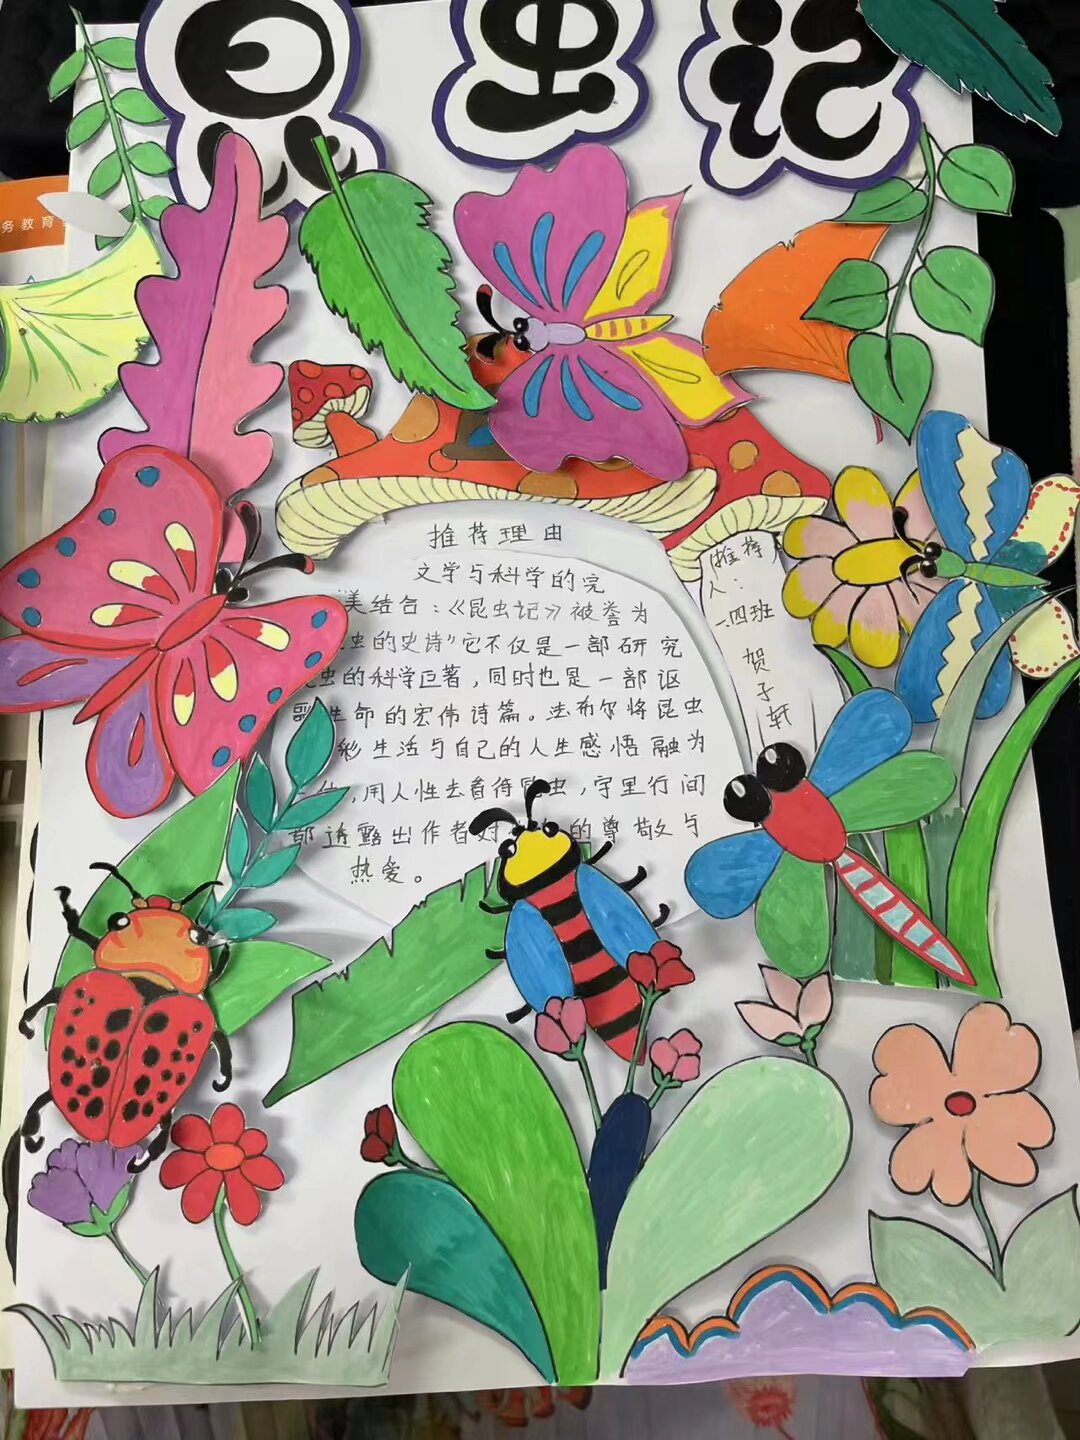 昆虫记
务教育
推荐理由
文学与科学的完
美结合:《昆虫记》被誉为
虫的史诗"它不仅是一部研究
虫的科学巨著,同时也是一部讴
歌生命的宏伟诗篇。法布尔将昆虫
彩生活与自己的人生感悟融为
体,用人性去看待昆虫,字里行间
都透露出作者对 的尊敬与
热爱。
推荐
人:
一.四班
贺子轩